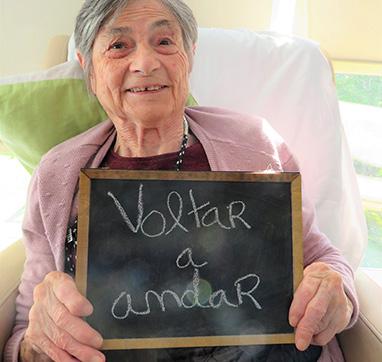 Voltar
a
andar